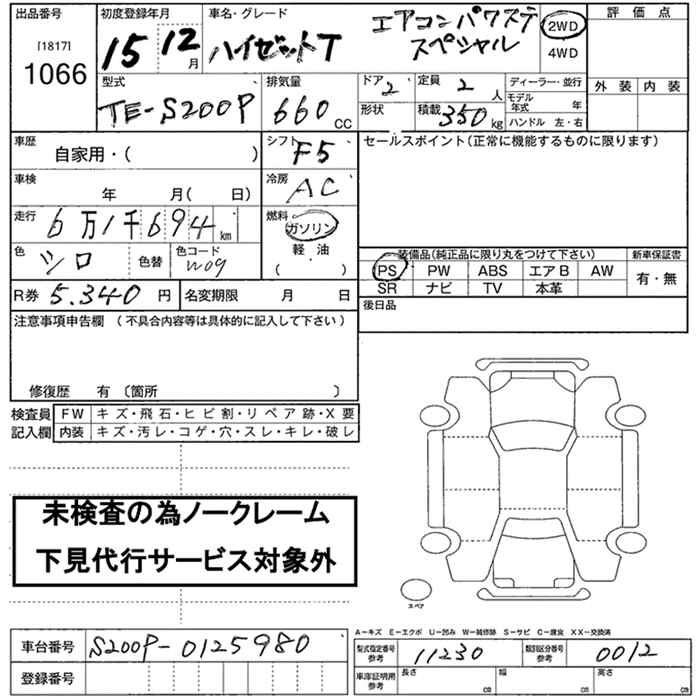 出品番号
[1817]
1066
初度登録年月
15 12 月
車名・グレード
ハイゼットT
エアコンパワステ
スペシャル
2WD
4WD
評価点
外装 内装
型式
TE-S200P
排気量
660 CC
ドア 2
形状
定員 2 人
積載 350 kg
ディーラー・並行
モデル年式 年
ハンドル 左・右
車歴
自家用・( )
シフト F5
セールスポイント(正常に機能するものに限ります)
車検
年 月( 日)
冷房 AC
走行
6万1千694 km
燃料
ガソリン
軽・油
( )
色 シロ
色替
色コード
W09
装備品(純正品に限り丸をつけて下さい)
新車保証書
PS PW ABS エアB AW
SR ナビ TV 本革
有・無
R券 5.340 円
名変期限 月 日
後日品
注意事項申告欄 (不具合内容等は具体的に記入して下さい)
修復歴 有 〔箇所 〕
検査員
記入欄
FW キズ・飛石・ヒビ割・リペア跡・X要
内装 キズ・汚レ・コゲ・穴・スレ・キレ・破レ
未検査の為ノークレーム
下見代行サービス対象外
スペア
A−キズ E−エクボ U−凹み W−補修跡 S−サビ C−腐食 XX−交換済
車台番号 S200P-0125980
登録番号
型式指定番号
参考
11230
類別区分番号
参考
0012
車庫証明用
参考
長さ cm
幅 cm
高さ cm